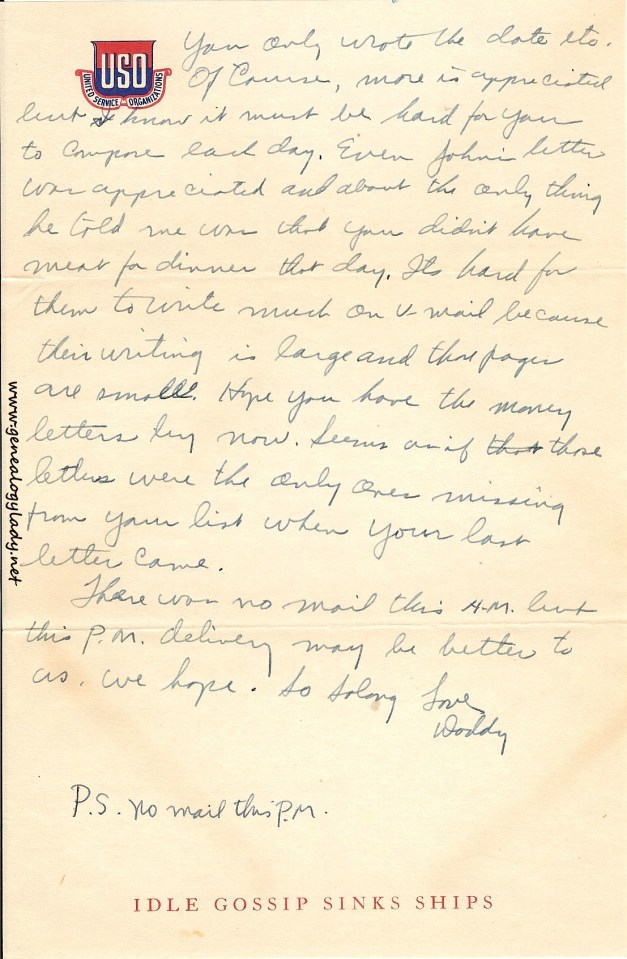 USO
UNITED SERVICE ORGANIZATIONS
You only wrote the date etc.
Of Course, more is appreciated
but I know it must be hard for you
to compose each day. Even John's letter
was appreciated and about the only thing
he told me was that you didn't have
meat for dinner that day. Its hard for
them to write much on V-mail because
their writing is large and those pages
are small. Hope you have the money
letters by now. Seems as if that those
letters were the only ones missing
from your list when your last
letter came.
There was no mail this A.M. but
this P.M. delivery may be better to
us. We hope. So So long Love
Daddy
P.S. No mail this P.M.
IDLE GOSSIP SINKS SHIPS
www.genealogylady.net